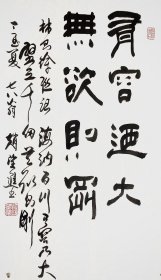 有容迺大
無欲則剛
林則徐聯語 海納百川有容乃大
壁立千仞無欲則剛
七八翁 趙